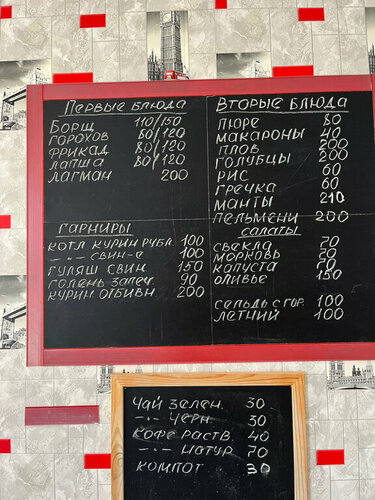 Первые блюда
Борщ 110/150
Горохов 60/120
Фрикад 80/120
Лапша 80/120
Лагман 200
Вторые блюда
Пюре 80
Макароны 40
Плов 200
Голубцы 200
Рис 60
Гречка 60
Манты 210
Пельмени 200
Гарниры
Котл курин рубл 100
-·- свин-е 100
Гуляш свин 150
Голень запеч. 90
Курин отбивн 200
Салаты
Свекла 70
Морковь
Капуста
Оливье 150
Сельдь с гор. 100
Летний 100
Чай зелен. 30
-·- черн. 30
Кофе раств. 40
-·- натур 70
Компот 30